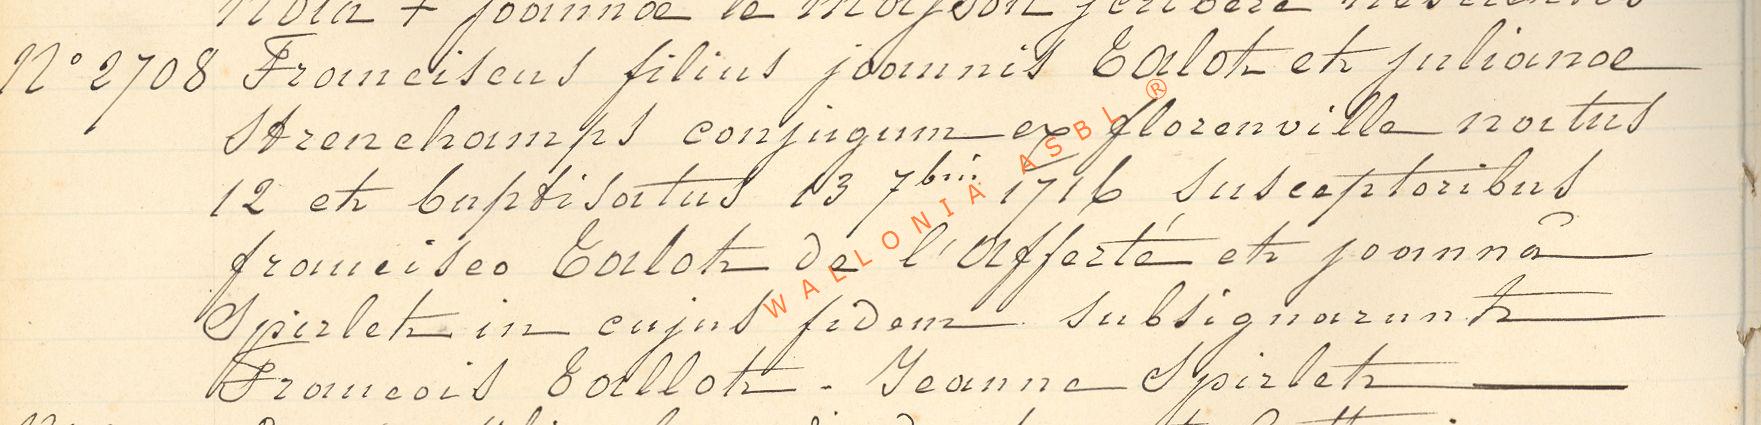 nota + joannae le mayson scribere nescientes
N° 2708 Franciscus filius joannis Talot et julianae
Strenchamps conjugum ex florenville natus
12 et baptisatus 13 7bris 1716 susceptoribus
francisco Talot de l'Afferté et joannâ
Spirlet in cujus fidem subsignarunt
Francois Tallot - Jeanne Spirlet
WALLONIA ASBL ®